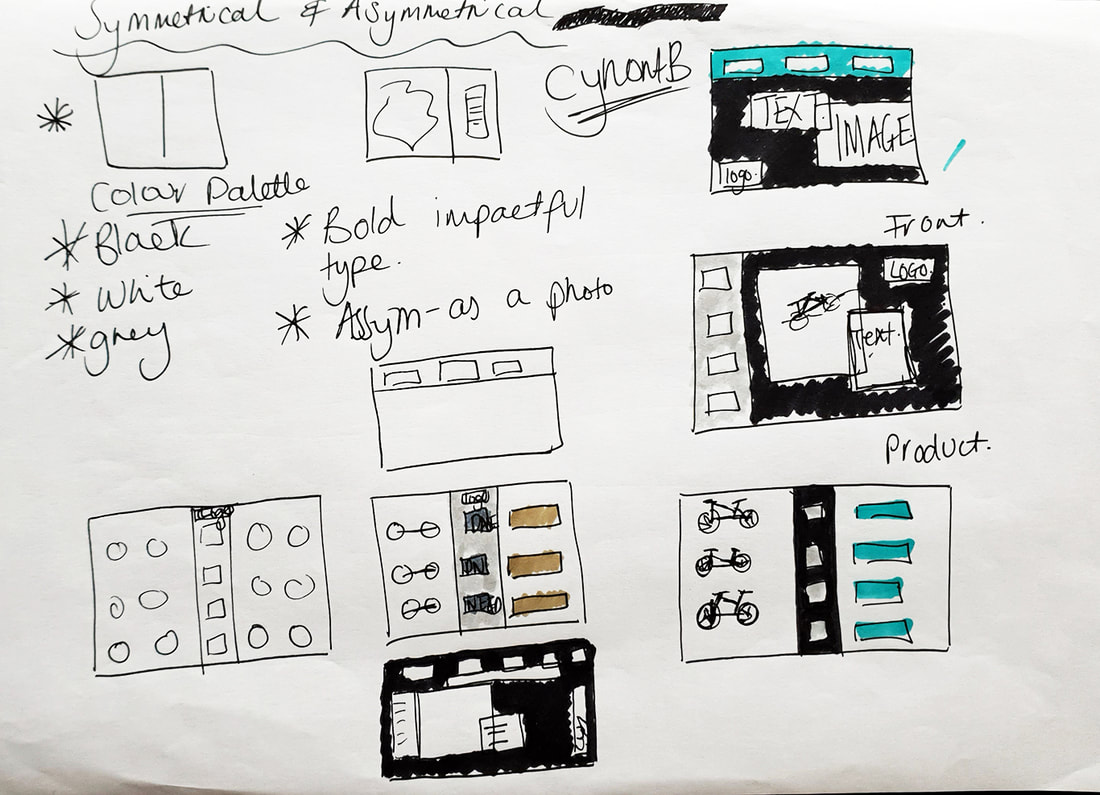 Symmetrical & Asymmetrical
CynontB
TEXT
IMAGE
logo.
Colour Palette
* Black
* White
* grey
* Bold impactful
type.
* Assym-as a photo
Front.
LOGO.
Text.
Product.
Logo
logo